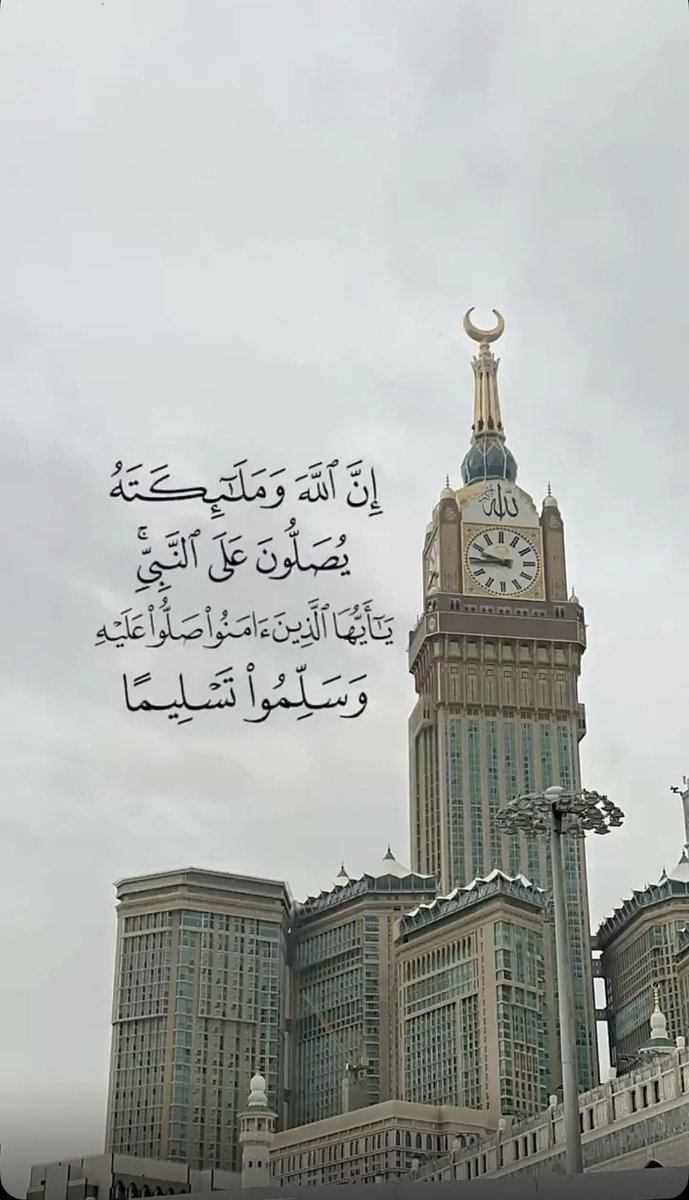 إِنَّ ٱللَّهَ وَمَلَٰٓئِكَتَهُۥ
يُصَلُّونَ عَلَى ٱلنَّبِيِّۚ
يَٰٓأَيُّهَا ٱلَّذِينَ ءَامَنُوا۟ صَلُّوا۟ عَلَيْهِ
وَسَلِّمُوا۟ تَسْلِيمًا
الله